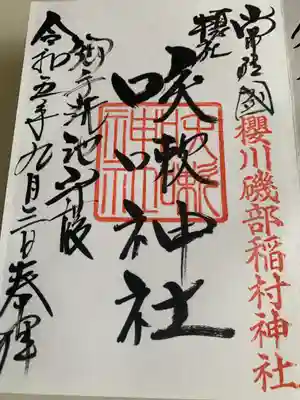 常陸國
櫻川磯部稲村神社
咳嗽神社
咳嗽
神社
御手洗池
令和五年九月二日奉拝